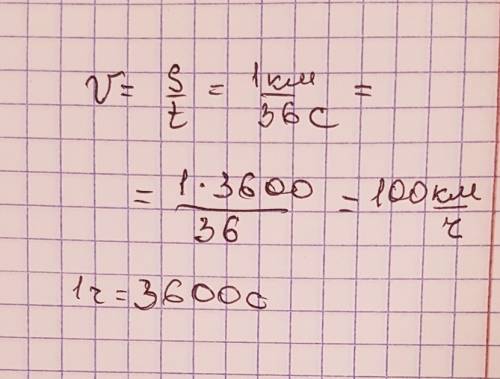 V = S/t = 1км/36с =
= 1·3600/36 = 100 км/ч
1ч = 3600с